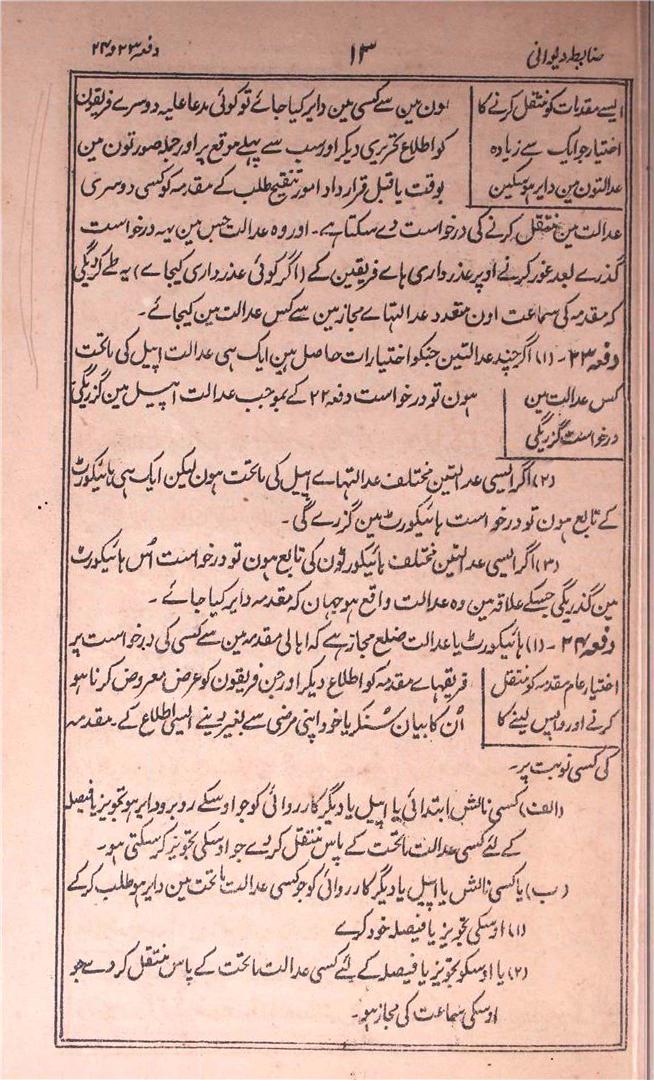 ضابطہ دیوانی
۱۳
دفعہ ۲۳ و ۲۴
ایسے مقدمات کو منتقل کرنے کا
اختیار جو ایک سے زیادہ
عدالتون مین دایر ہوسکین
ہون مین سے کسی مین دایر کیا جائے تو کوئی مدعا علیہ دوسرے فریقون
کو اطلاع تحریری دیکر اور سب سے پہلے موقع پر اور جملہ صورتون مین
بوقت یا قبل قرار داد امور تنقیح طلب کے مقدمہ کو کسی دوسری
عدالت مین منتقل کرنے کی درخواست دے سکتا ہے۔ اور وہ عدالت جس مین یہہ درخواست
گذرے بعد غور کرنے اوپر عذرداری ہاے فریقین کے (اگر کوئی عذرداری کیجاے) یہ طے کریگی
کہ مقدمہ کی سماعت اون متعدد عدالتہاے مجاز مین سے کس عدالت مین کیجائے۔
دفعہ ۲۳۔ (۱) اگر چند عدالتین جنکو اختیارات حاصل ہین ایک ہی عدالت اپیل کی ماتحت
کس عدالت مین
درخواست گزریگی
ہون تو درخواست دفعہ ۲۲ کے بموجب عدالت اپیل مین گزریگی
(۲) اگر ایسی عدالتین مختلف عدالتہاے اپیل کی ماتحت ہون لیکن ایک ہی ہائیکورٹ
کے تابع ہون تو درخواست ہائیکورٹ مین گزرے گی۔
(۳) اگر ایسی عدالتین مختلف ہائیکورٹون کی تابع ہون تو درخواست اُس ہائیکورٹ
مین گذریگی جسکے علاقہ مین وہ عدالت واقع ہو جہان کہ مقدمہ دایر کیا جائے۔
دفعہ ۲۴۔ (۱) ہائیکورٹ یا عدالت ضلع مجاز ہے کہ اہالی مقدمہ مین سے کسی کی درخواست پر
اختیار عام مقدمہ کو منتقل
کرنے اور واپس لینے کا
فریقہاے مقدمہ کو اطلاع دیکر اور جن فریقون کو عرض معروض کرنا ہو
اُن کا بیان سُنکر یا خود اپنی مرضی سے بغیر دینے ایسی اطلاع کے۔ مقدمہ
کی کسی نوبت پر۔
(الف) کسی نالش ابتدائی یا اپیل یا دیگر کارروائی کو جو اوسکے روبرو دایر ہو تجویز یا فیصلہ
کے لئے کسی عدالت ماتحت کے پاس منتقل کردے جو اوسکی تجویز کرسکتی ہو۔
(ب) یا کسی نالش یا اپیل یا دیگر کارروائی کو جو کسی عدالت ماتحت مین دایر ہو طلب کرکے
(۱) اوسکی تجویز یا فیصلہ خود کرے
(۲) یا اوسکو تجویز یا فیصلہ کے لئے کسی عدالت ماتحت کے پاس منتقل کردے جو
اوسکی سماعت کی مجاز ہو۔